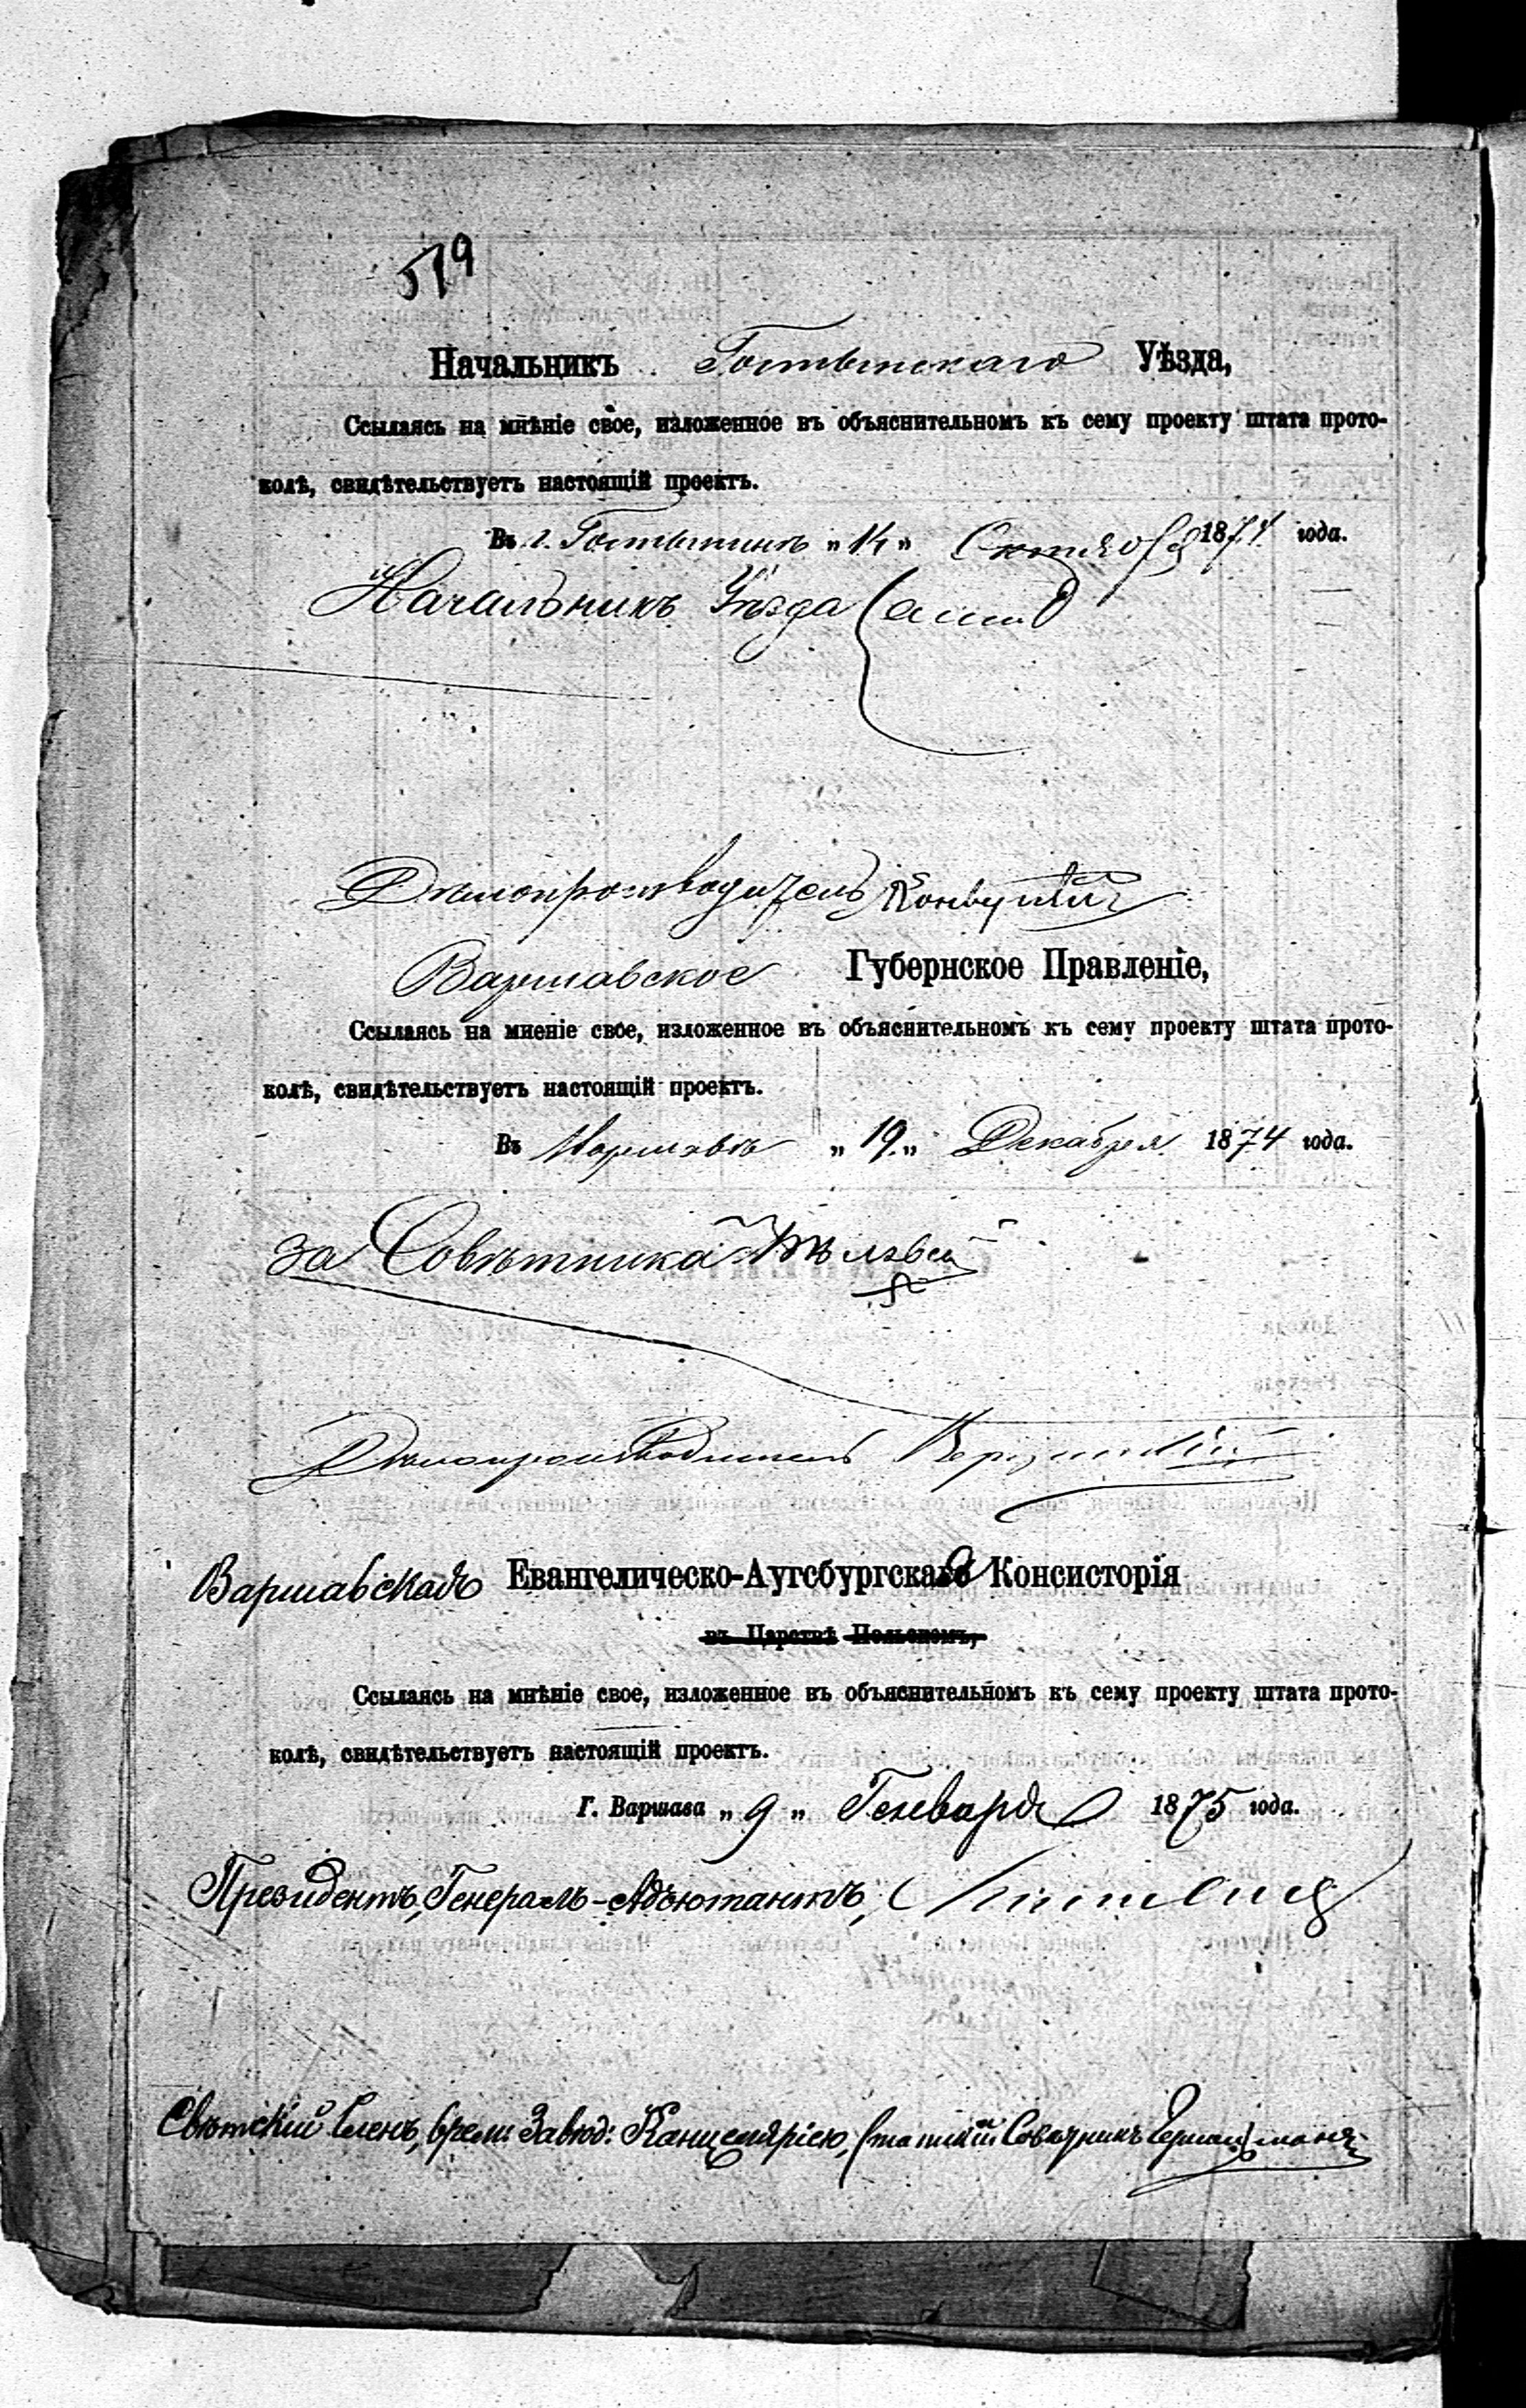 519
Начальникъ Гостынскаго Уѣзда,
Ссылаясь на мнѣніе свое, изложенное въ объяснительномъ къ сему проекту штата прото-
колѣ, свидѣтельствуетъ настоящій проектъ.
Въ г. Гостынинѣ „14„ Октября 1874 года.
Начальникъ Уѣзда
Дѣлопроизводитель
Варшавское Губернское Правленіе,
Ссылаясь на мненіе свое, изложенное въ объяснительномъ къ сему проекту штата прото-
колѣ, свидѣтельствуетъ настоящій проектъ.
Въ Варшавѣ „19.„ Декабря 1874 года.
за Совѣтника
Дѣлопроизводитель
Варшавская Евангелическо-Аугсбургская Консисторія
въ Царствѣ Польскомъ,
Ссылаясь на мнѣніе свое, изложенное въ объяснительномъ къ сему проекту штата прото-
колѣ, свидѣтельствуетъ настоящій проектъ.
Г. Варшава „9„ Генваря 1875 года.
Президентъ, Генералъ-Адъютантъ,
Свѣтскій Членъ, врем: Завѣд: Канцеляріею, Статскій Совѣтникъ